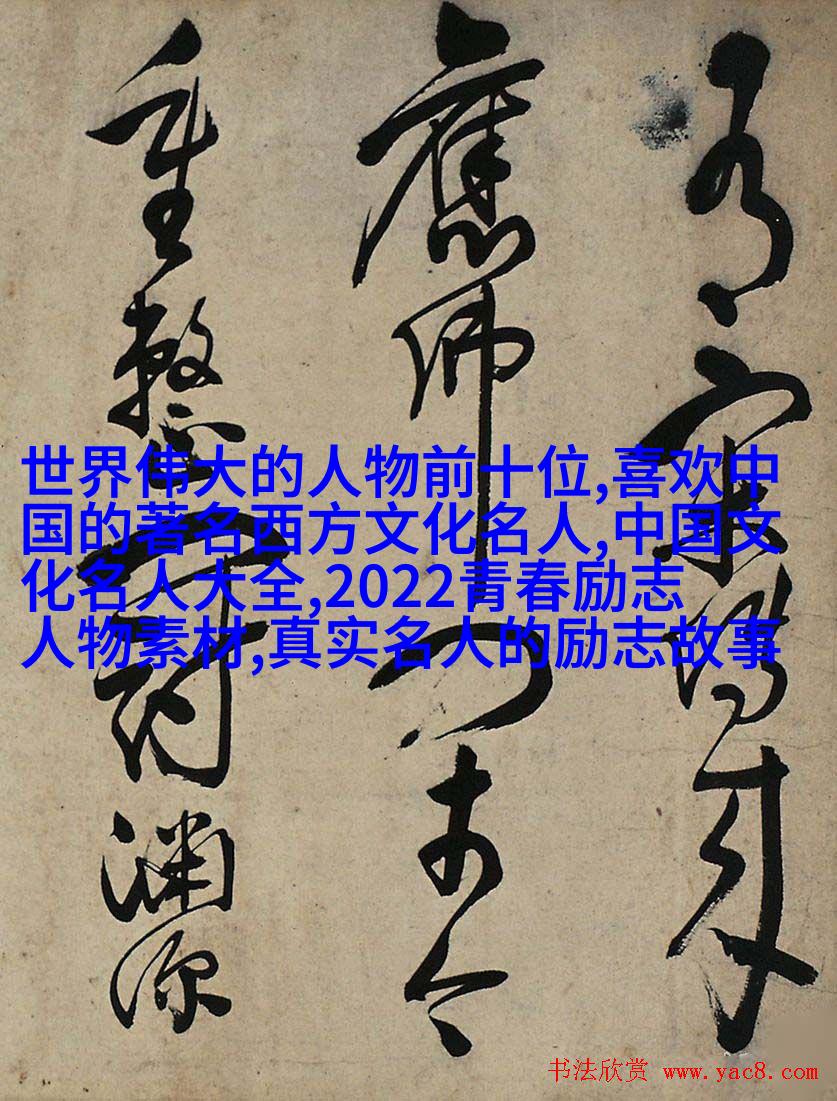 世界伟大的人物前十位,喜欢中
国的著名西方文化名人,中国文
化名人大全,2022青春励志
人物素材,真实名人的励志故事
宋
古今
重整渊源
书法欣赏 www.yac8.com